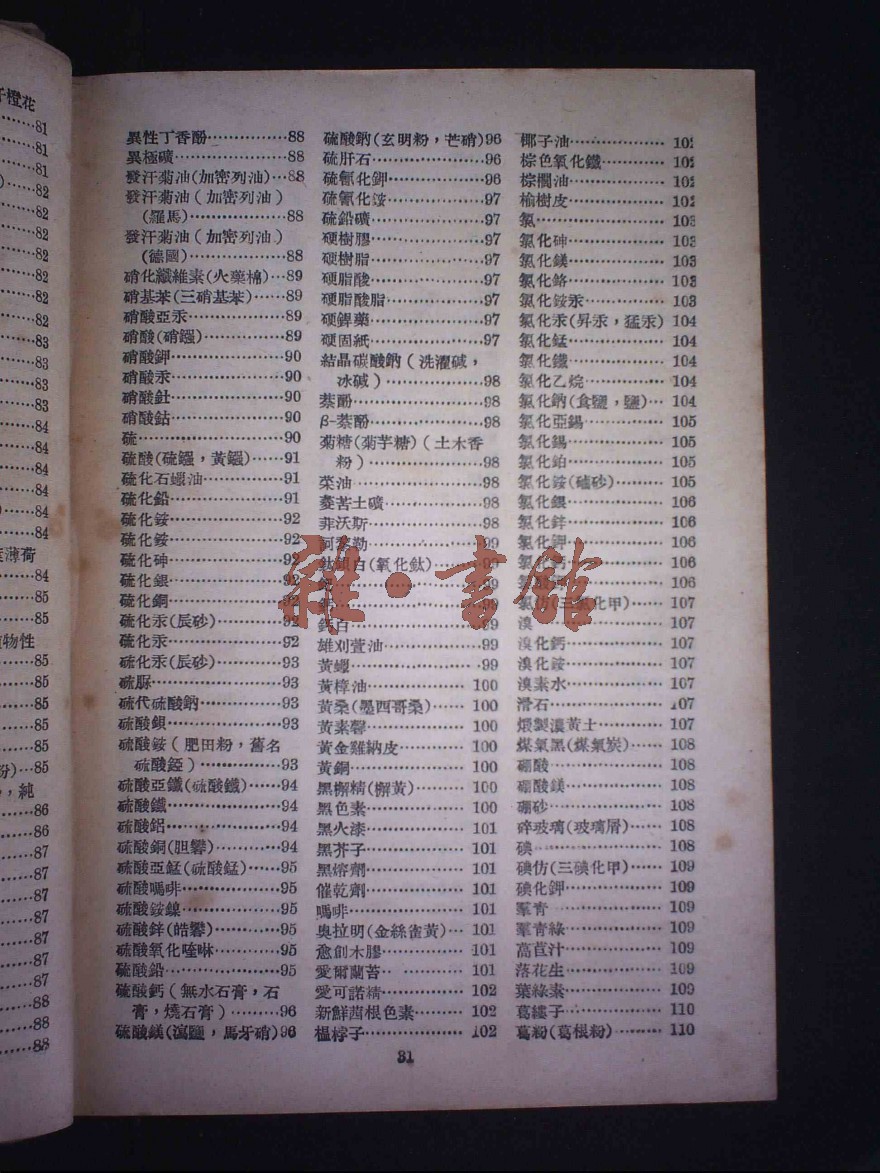 異性丁香酚……………88
異極礦………………88
發汗菊油(加密列油)…88
發汗菊油(加密列油)
(羅馬)……………88
發汗菊油(加密列油)
(德國)……………88
硝化纖維素(火藥棉)…89
硝基苯(三硝基苯)……89
硝酸亞汞……………89
硝酸(硝鏹)…………89
硝酸鉀………………90
硝酸汞………………90
硝酸釷………………90
硝酸鈷………………90
硫……………………90
硫酸(硫鏹，黃鏹)……91
硫化石蠟油…………91
硫化鉛………………91
硫化銨………………92
硫化銨………………92
硫化砷………………92
硫化銀………………92
硫化銅………………92
硫化汞(辰砂)………92
硫化汞………………92
硫化汞(辰砂)………93
硫脲…………………93
硫代硫酸鈉…………93
硫酸鋇………………93
硫酸銨(肥田粉，舊名
硫酸錏)……………93
硫酸亞鐵(硫酸鐵)……94
硫酸鐵………………94
硫酸鋁………………94
硫酸銅(胆礬)………94
硫酸亞錳(硫酸錳)……95
硫酸嗎啡……………95
硫酸銨鎳……………95
硫酸鋅(皓礬)………95
硫酸氧化喹啉………95
硫酸鉛………………95
硫酸鈣(無水石膏，石
膏，燒石膏)………96
硫酸鎂(瀉鹽，馬牙硝)96
硫酸鈉(玄明粉，芒硝)96
硫肝石………………96
硫氰化鉀……………96
硫氰化銨……………97
硫鉛礦………………97
硬樹膠………………97
硬樹脂………………97
硬脂酸………………97
硬脂酸脂……………97
硬鋅藥………………97
硬固紙………………97
結晶碳酸鈉(洗濯碱，
冰碱)………………98
萘酚…………………98
β-萘酚………………98
菊糖(菊芋糖)(土木香
粉)…………………98
菜油…………………98
菱苦土礦……………98
菲沃斯………………98
訶黎勒………………99
鈦鋇白(氧化鈦)……99
99
99
鈣白…………………99
雄刈萱油……………99
黃蠟…………………99
黃樟油………………100
黃桑(墨西哥桑)……100
黃素馨………………100
黃金雞納皮…………100
黃銅…………………100
黑檞精(檞黃)………100
黑色素………………100
黑火漆………………101
黑芥子………………101
黑熔劑………………101
催乾劑………………101
嗎啡…………………101
奥拉明(金絲雀黃)…101
愈創木膠……………101
愛爾蘭苔……………101
愛可諾精……………102
新鮮茜根色素………102
榲桲子………………102
椰子油………………102
棕色氧化鐵…………102
棕櫚油………………102
榆樹皮………………102
氯……………………103
氯化砷………………103
氯化鎂………………103
氯化鉻………………103
氯化銨汞……………103
氯化汞(昇汞，猛汞)104
氯化錳………………104
氯化鐵………………104
氯化乙烷……………104
氯化鈉(食鹽，鹽)…104
氯化亞錫……………105
氯化錫………………105
氯化鉑………………105
氯化銨(磠砂)………105
氯化鋇………………106
氯化鋅………………106
氯化鉀………………106
氯化鈣………………106
106
氯仿(三氯化甲)……107
溴……………………107
溴化鈣………………107
溴化銨………………107
溴素水………………107
滑石…………………107
煅製漢黃土…………107
煤氣黑(煤氣炭)……108
硼酸…………………108
硼酸鎂………………108
硼砂…………………108
碎玻璃(玻璃屑)……108
碘……………………108
碘仿(三碘化甲)……109
碘化鉀………………109
羣青…………………109
羣青綠………………109
萵苣汁………………109
落花生………………109
葉綠素………………109
葛縷子………………110
葛粉(葛根粉)………110
31
雜·書館
子橙花
薄荷
物性
，純